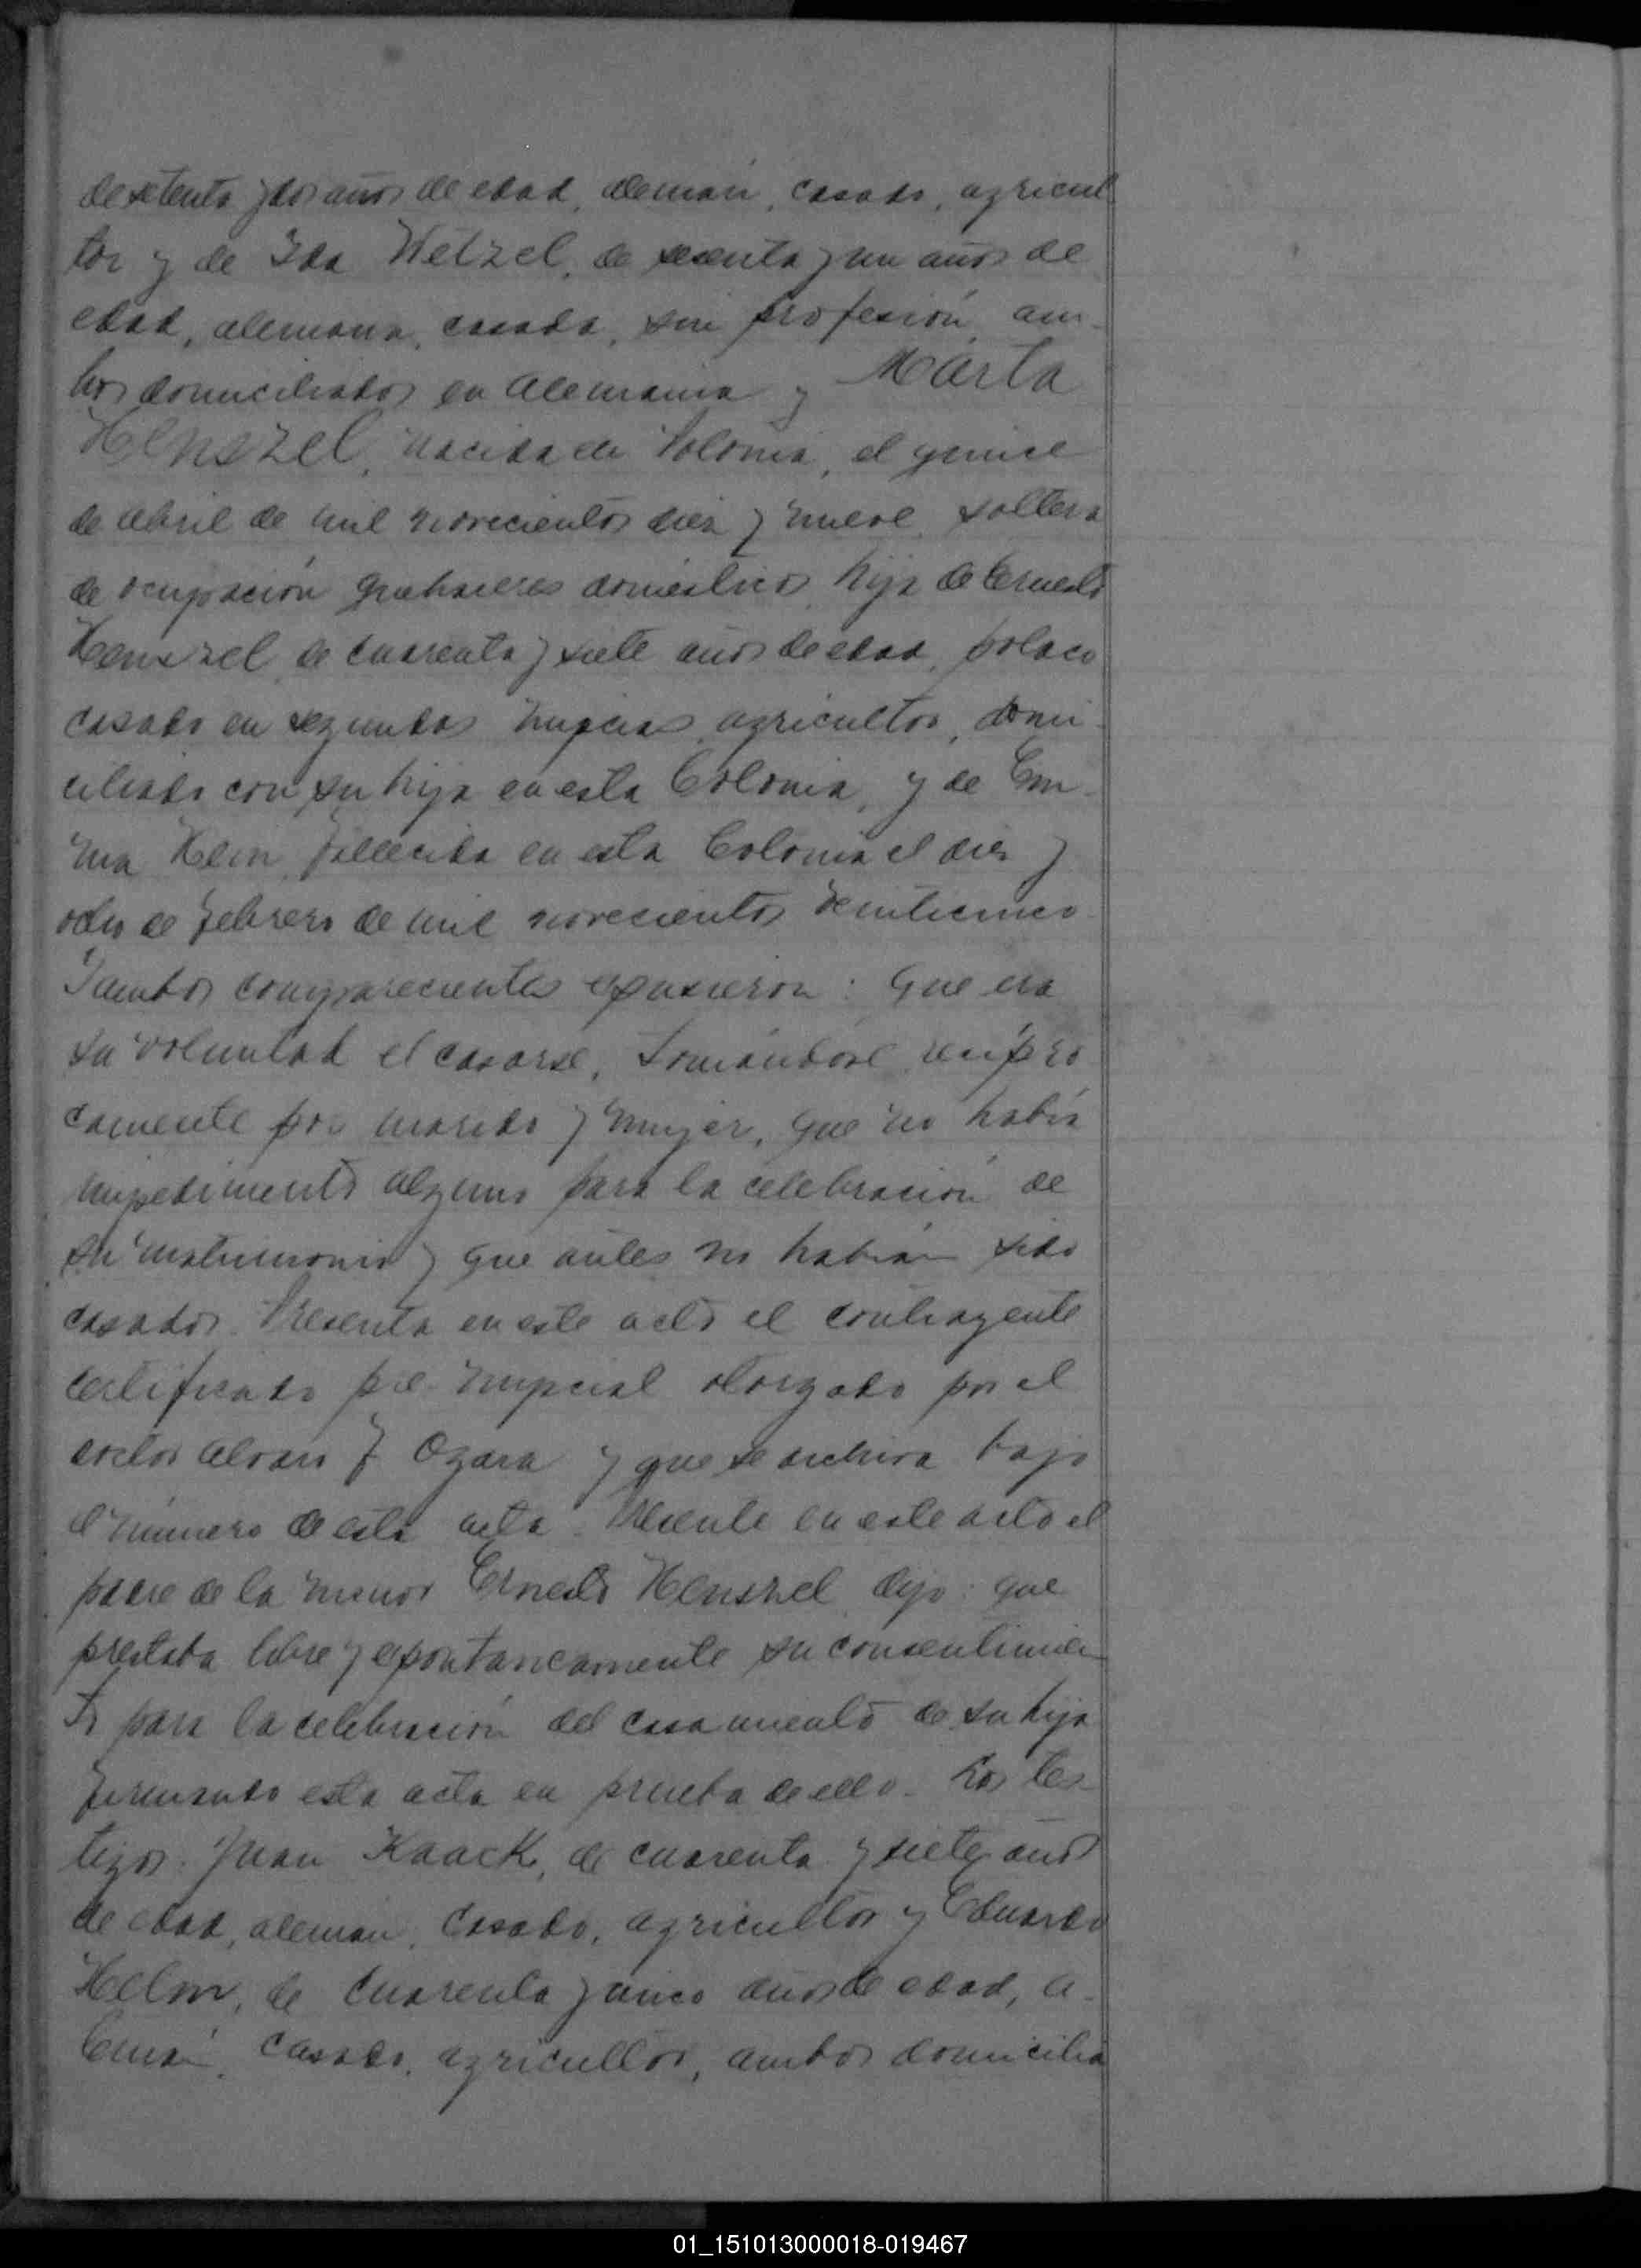 de setenta y dos años de edad, alemán, casado, agricul
tor y de Ida Wetzel, de sesenta y un años de
edad, alemana, casada, sin profesión, am-
bos domiciliados en Alemania y Marta
Henszel, nacida en Polonia, el quince
de abril de mil novecientos diez y nueve, soltera
de ocupación quehaceres domésticos, hija de Ernesto
Henszel, de cuarenta y siete años de edad, polaco
casado en segundas nupcias, agricultor, domi-
ciliado con su hija en esta Colonia, y de Em-
ma fallecida en esta Colonia el diez y
ocho de febrero de mil novecientos veinticinco.
Y ambos comparecientes expusieron: que era
su voluntad el casarse, tomándose recípro
camente por marido y mujer, que no había
impedimento alguno para la celebración de
su matrimonio y que antes no habían sido
casados. Presenta en este acto el contrayente
certificado pre-nupcial otorgado por el
doctor Alvaro F. Ozara y que se archiva bajo
el número de esta acta. Presente en este acto el
padre de la menor Ernesto Henszel, dijo: que
prestaba libre y espontaneamente su consentimien
to para la celebración del casamiento de su hija
firmando esta acta en prueba de ello. Los tes-
tigos: Juan Kaack, de cuarenta y siete años
de edad, alemán, casado, agricultor y Eduardo
Helm, de cuarenta y cinco años de edad, a-
lemán, casado, agricultor, ambos domicilia
01_151013000018-019467